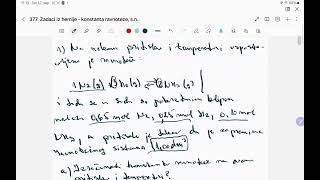 377. Zadaci iz hemije - konstanta ravnoteze, s.n.
1) Na nekom pritisku i temperaturi uspostavljena je ravnoteža:
1 N₂(g) + 3H₂(g) ⇌ 2NH₃(g)
i tada se u sudu sa pokretnim klipom
nalazi 0,65 mol N₂, 0,25 mol H₂, 0,10 mol
NH₃, a pritisak je da je zapremina
sistema 1,00 dm³
a) Izračunati konstantu ravnoteže na ovom
pritisku i temperaturi?